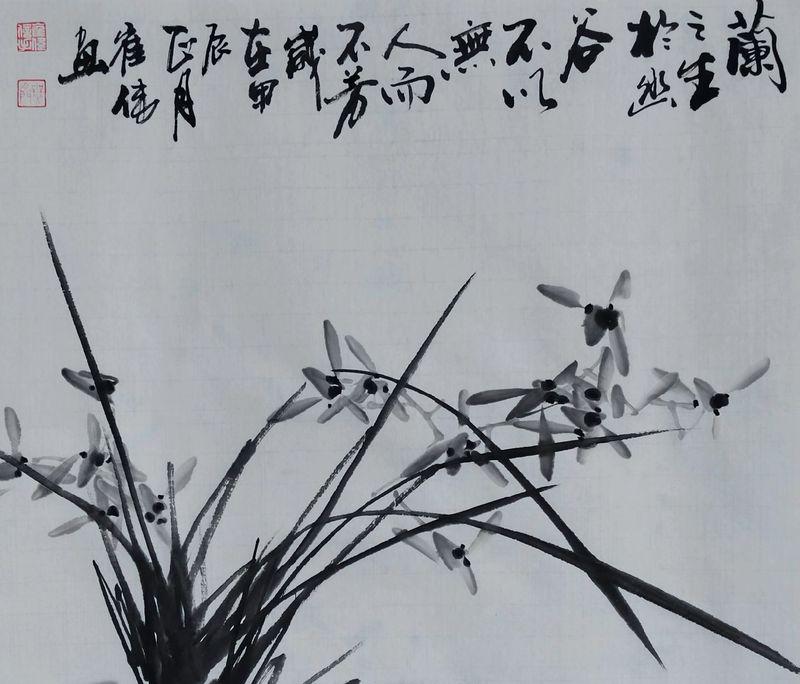 蘭
之生
於幽
谷
不以
無
人而
不芳
歲
在甲
辰
正月
崔偉
畫